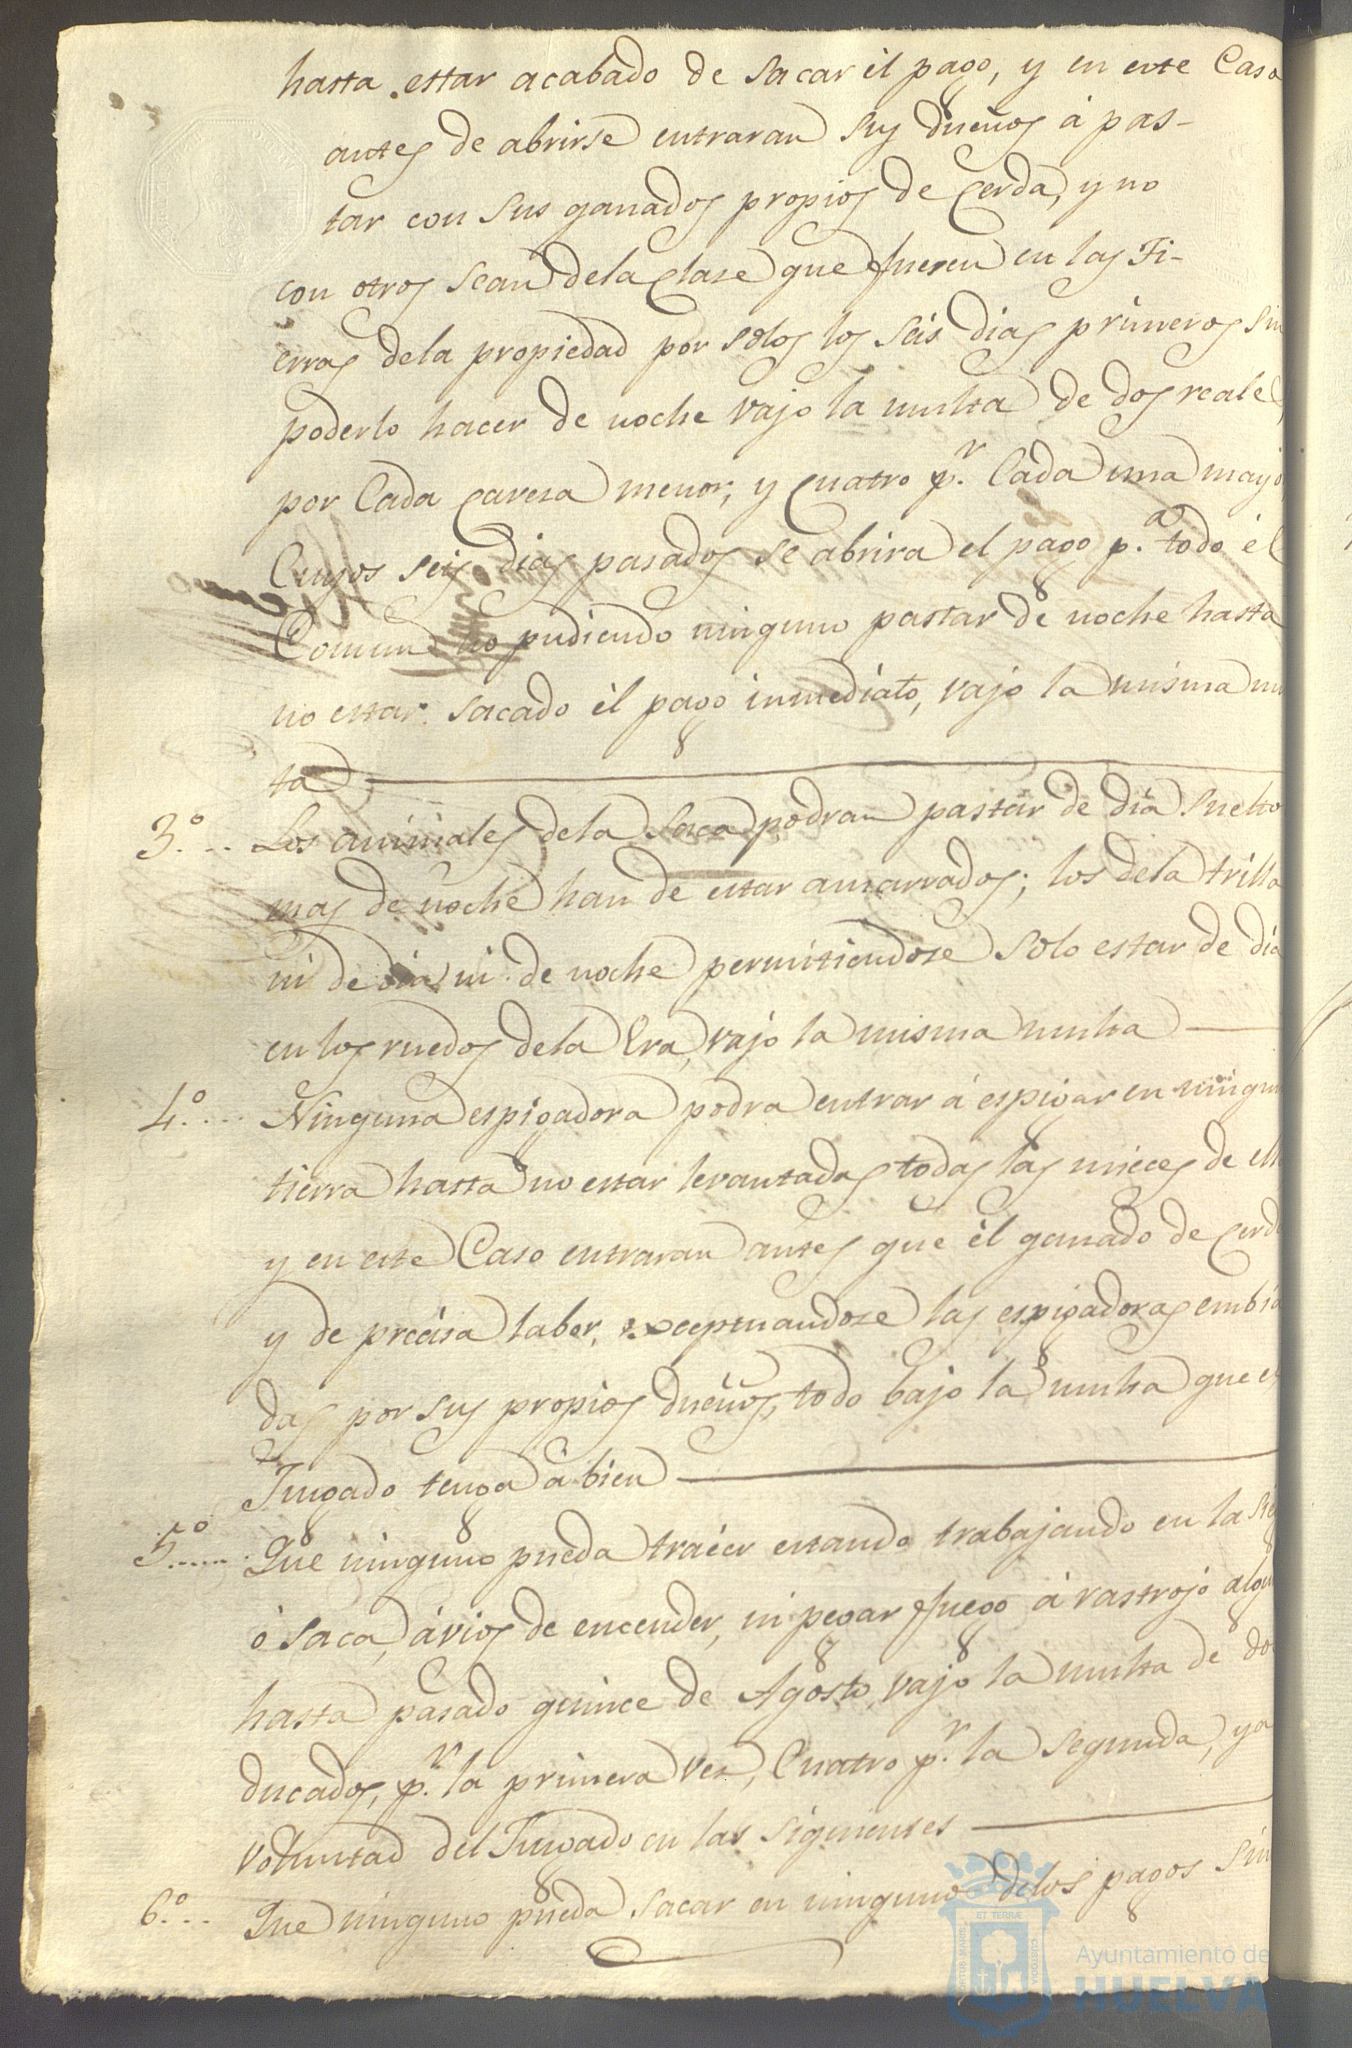 hasta estar acabado de sacar el pago, y en este Caso
antes de abrirse entraran sus dueños á pas-
tar con sus ganados propios de Cerda, y no
con otros sean dela Clase que fueren en las Ti-
erras dela propiedad por solos los seis dias primeros sin
poderlo hacer de noche vajo la multa de dos reale
por Cada Caveza menor, y Cuatro p.r Cada una mayo
Cuyos seis dias pasados se abrira el pago p.a todo el
Comun no pudiendo ninguno pastar de noche hasta
no estar sacado él pago inmediato, vajo la misma mu
ta
3.º... Los animales dela Saca podran pastar de dia suelto
mas de noche han de estar amarrados; los dela trilla
ni de dia, ni de noche permitiendose solo estar de dia
en los ruedos dela Era, vajo la misma multa
4.º... Ninguna espigadora podra entrar á espigar en ningun
tierra hasta no estar levantadas todas las mieces de ell
y en este Caso entraran antes que él ganado de Cerd
y de precisa labor, exceptuandose las espigadoras embia
das por sus propios dueños, todo bajo la multa que es
Juzgado tenga á bien
5.º..... Que ninguno pueda traéer estando trabajando en la sieg
ó saca, ávios de encender, ni pegar fuego á rastrojo algu
hasta pasado quince de Agosto, vajo la multa de do
ducados, p.r la primera vez, Cuatro p.r la segunda, y a
voluntad del Juzgado en las siguientes
6.º... Que ninguno pueda sacar en ninguno delos pagos sin
ET TERRÆ
PORTUS MARIS
CUSTODIA
Ayuntamiento de
HUELVA